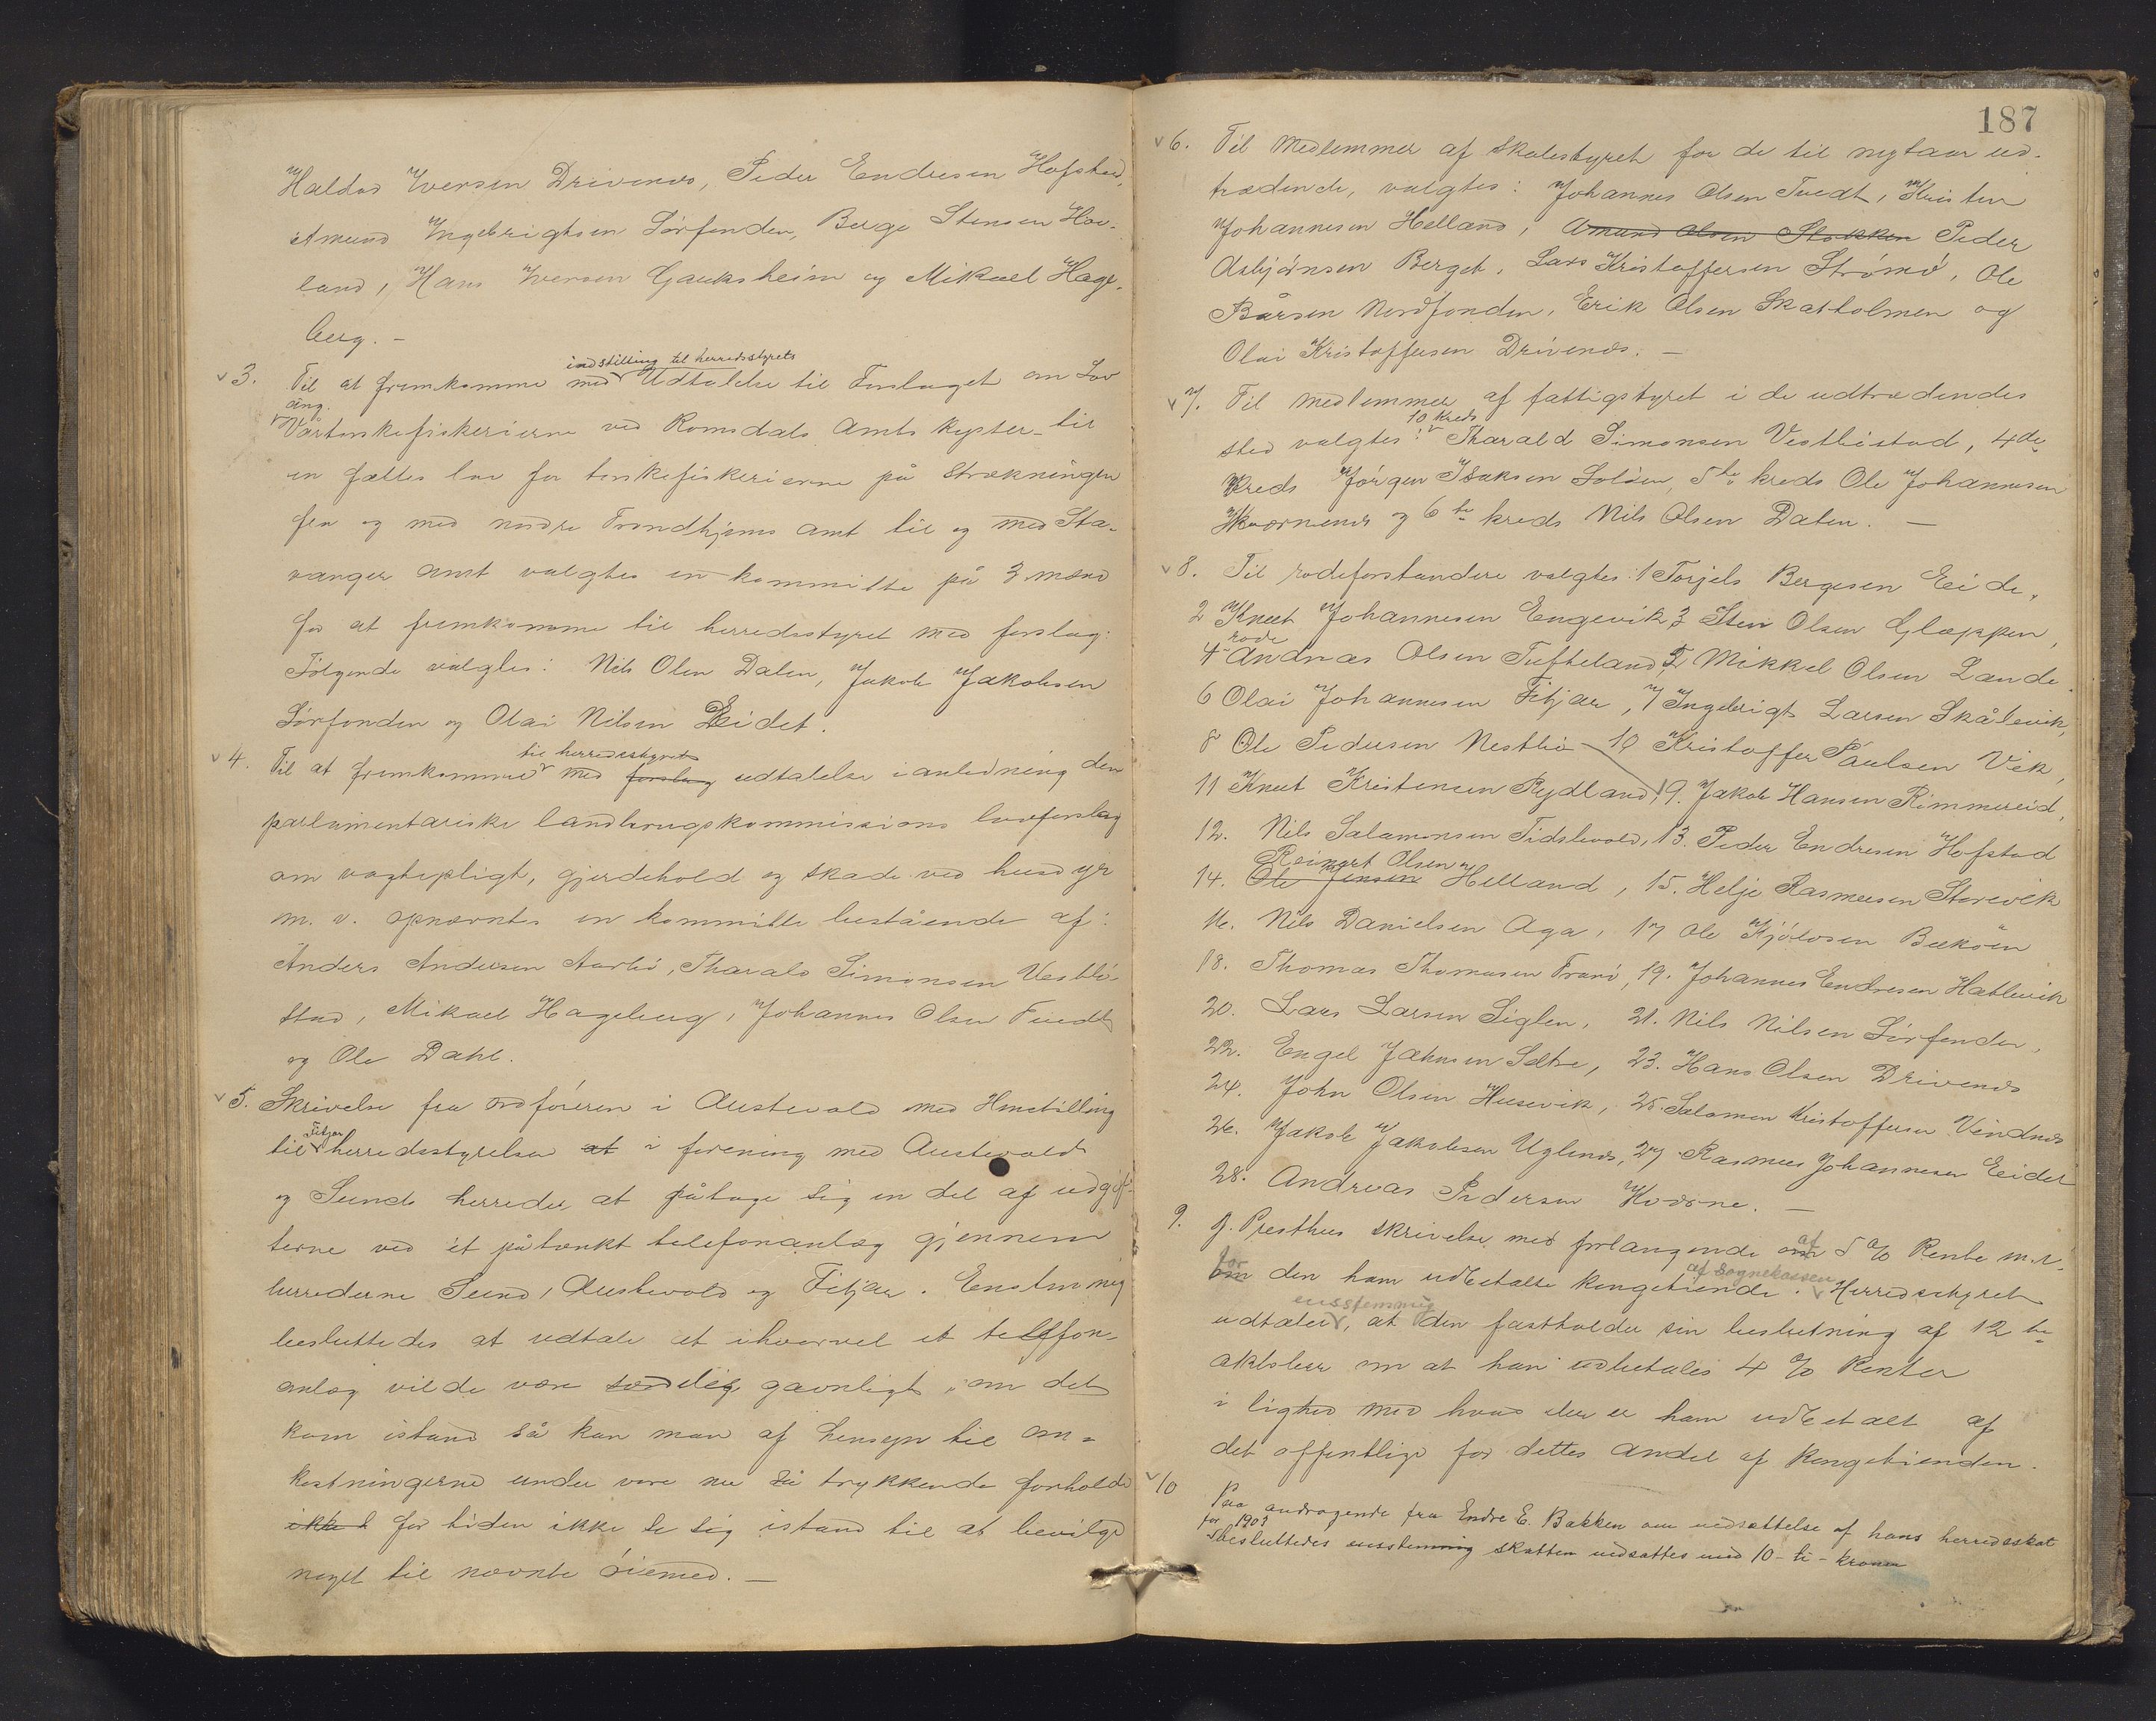 Haldor Iversen Drivenes, Peder Endresen Hofstad,
Amund Ingebrigtsen Sørfonden, Berge Stensen Hov-
land, Hans Iversen Gauksheim og Mikael Hage-
berg. -
3. Til at fremkomme med indstilling til herredsstyrets Udtalelse til Forslaget om Lov
ang. Vårtorskefiskerierne ved Romsdals Amts kyster - til
en fælles lov for torskefiskerierne på strækningen
fra og med nordre Trondhjems amt til og med Sta-
vanger amt valgtes en kommitte på 3 mænd
for at fremkomme til herredsstyret med forslag:
Følgende valgtes: Nils Olsen Dalen, Jakob Jakobsen
Sørfonden og Olai Nilsen Eidet.
4. Til at fremkomme til herredsstyret med forslag udtalelse i anledning den
parlamentariske landbrugskommissions lovforslag
om vogtepligt, gjerdehold og skade ved husdyr
m. v. opnævntes en kommitte bestående af:
Anders Andersen Aarbø, Tharald Simonsen Vestbø-
stad, Mikael Hageberg, Johannes Olsen Tvedt
og Ole Dahl.
5. Skrivelse fra ordføreren i Austevold med Henstilling
til Fitjar herredsstyrelse at i forening med Austevold
og Sunds herreder at påtage sig en del af udgif-
terne ved et påtænkt telefonanlæg gjennem
herrederne Sund, Austevold og Fitjar. Enstemmig
besluttedes at udtale at ihvorvel et telefon-
anlæg vilde være særdeles gavnligt, om det
kom istand så kan man af hensyn til om-
kostningerne under vore nu så trykkende forholde
ikke for tiden ikke se sig istand til at bevilge
noget til nævnte øiemed. -
187
6. Til Medlemmer af skolestyret for de til nytaar ud-
trædende, valgtes: Johannes Olsen Tvedt, Kristen
Johannesen Helland, Amund Olsen Stokken Peder
Asbjørnsen Berget, Lars Kristoffersen Strømø, Ole
Bårsen Nordfonden, Erik Olsen Skatholmen og
Olai Kristoffersen Drivenes. -
7. Til medlemmer af fattigstyret i de udtrædendes
sted valgtes: 10 kreds Tharald Simonsen Vestbøstad, 4de
kreds Jørgen Isaksen Soløen, 5te kreds Ole Johannesen
Kvernenes og 6te kreds Nils Olsen Dalen. -
8. Til rodeforstandere valgtes: 1 Torjels Bergesen Eide,
2 Knut Johannesen Engevik, 3 Sten Olsen Gloppen,
4 rode Andreas Olsen Tufteland, 5 Mikkel Olsen Lande
6 Olai Johannesen Fitjar, 7 Ingebrigt Larsen Skålevik,
8 Ole Pedersen Nestbø 10 Kristoffer Paulsen Vik,
11 Knut Kristensen Rydland, 9. Jakob Hansen Rimmereid,
12. Nils Salamonsen Tislevold, 13. Peder Endresen Hofstad
14. Ole Jensen Reinert Olsen Helland, 15. Helje Rasmusen Storevik
16. Nils Danielsen Aga, 17 Ole Kjølvsen Bukøen
18. Thomas Thomasen Tranø, 19. Johannes Endresen Hatlevik
20. Lars Larsen Siglen, 21. Nils Nilsen Sørfonden,
22. Engel Jahnsen Sætre, 23. Hans Olsen Drivenes
24. John Olsen Husevik, 25. Salamon Kristoffersen Vindnes
26. Jakob Jakobsen Uglenes, 27 Rasmus Johannesen Eidet
28. Andreas Pedersen Koværne. -
9. J. Presthus skrivelse med forlangende om af 5 % Rente m.v.
om for den ham udbetalte kongetiende af Sognekassen. Herredsstyret
udtaler ensstemmig, at den fastholder sin beslutning af 12te
oktober om at han udbetales 4 % Renter
i lighed med hvad der er ham udbetalt af
det offentlige for dettes andel af kongetienden.
10 Paa andragende fra Endre E. Bakken om nedsættelse af hans herredsskat
for 1903 besluttedes ensstemmig skatten nedsattes med 10 - ti - kroner